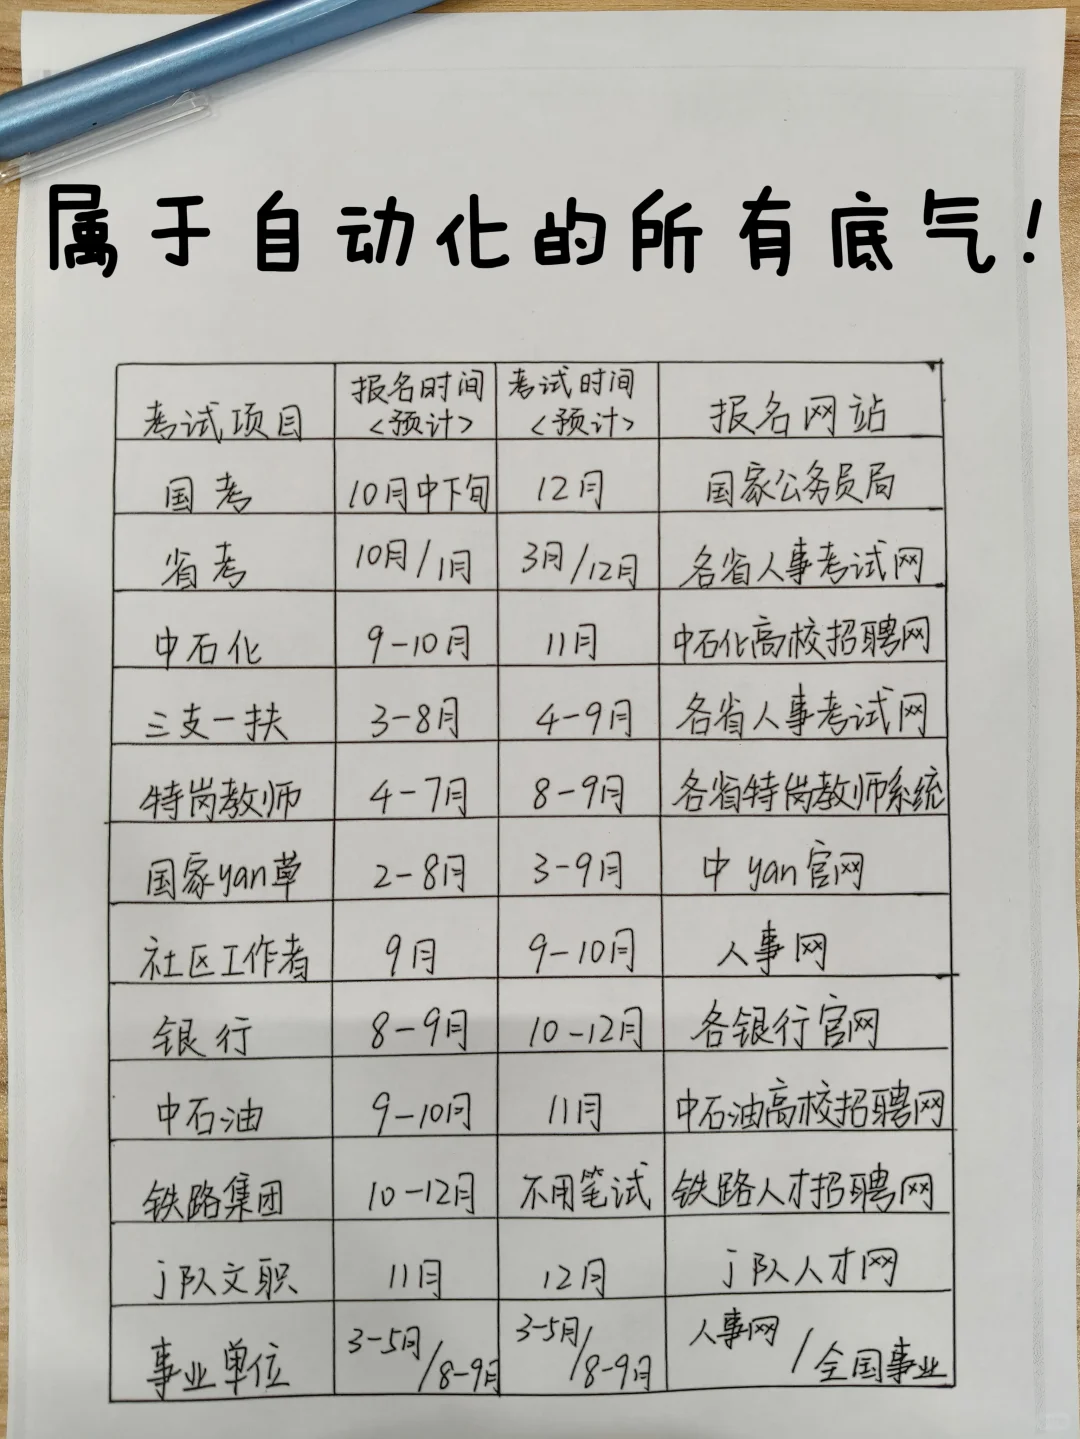 属于自动化的所有底气！
考试项目 报名时间<预计> 考试时间<预计> 报名网站
国考 10月中下旬 12月 国家公务员局
省考 10月/1月 3月/12月 各省人事考试网
中石化 9-10月 11月 中石化高校招聘网
三支一扶 3-8月 4-9月 各省人事考试网
特岗教师 4-7月 8-9月 各省特岗教师系统
国家yan草 2-8月 3-9月 中yan官网
社区工作者 9月 9-10月 人事网
银行 8-9月 10-12月 各银行官网
中石油 9-10月 11月 中石油高校招聘网
铁路集团 10-12月 不用笔试 铁路人才招聘网
j队文职 11月 12月 j队人才网
事业单位 3-5月/8-9月 3-5月/8-9月 人事网/全国事业